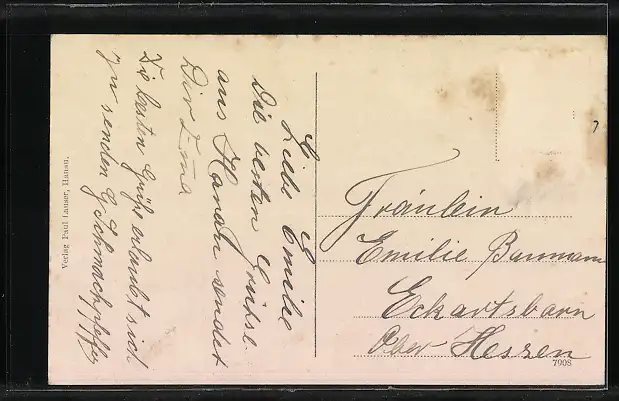 Liebe Emilie
Die besten Grüsse
aus Hanau sendet
Dir
Die besten Grüße erlaubt sich
zu senden G.
Verlag Paul Lauser, Hanau.
Fräulein
Emilie Baumann
Eckartsborn
Ober Hessen
7908